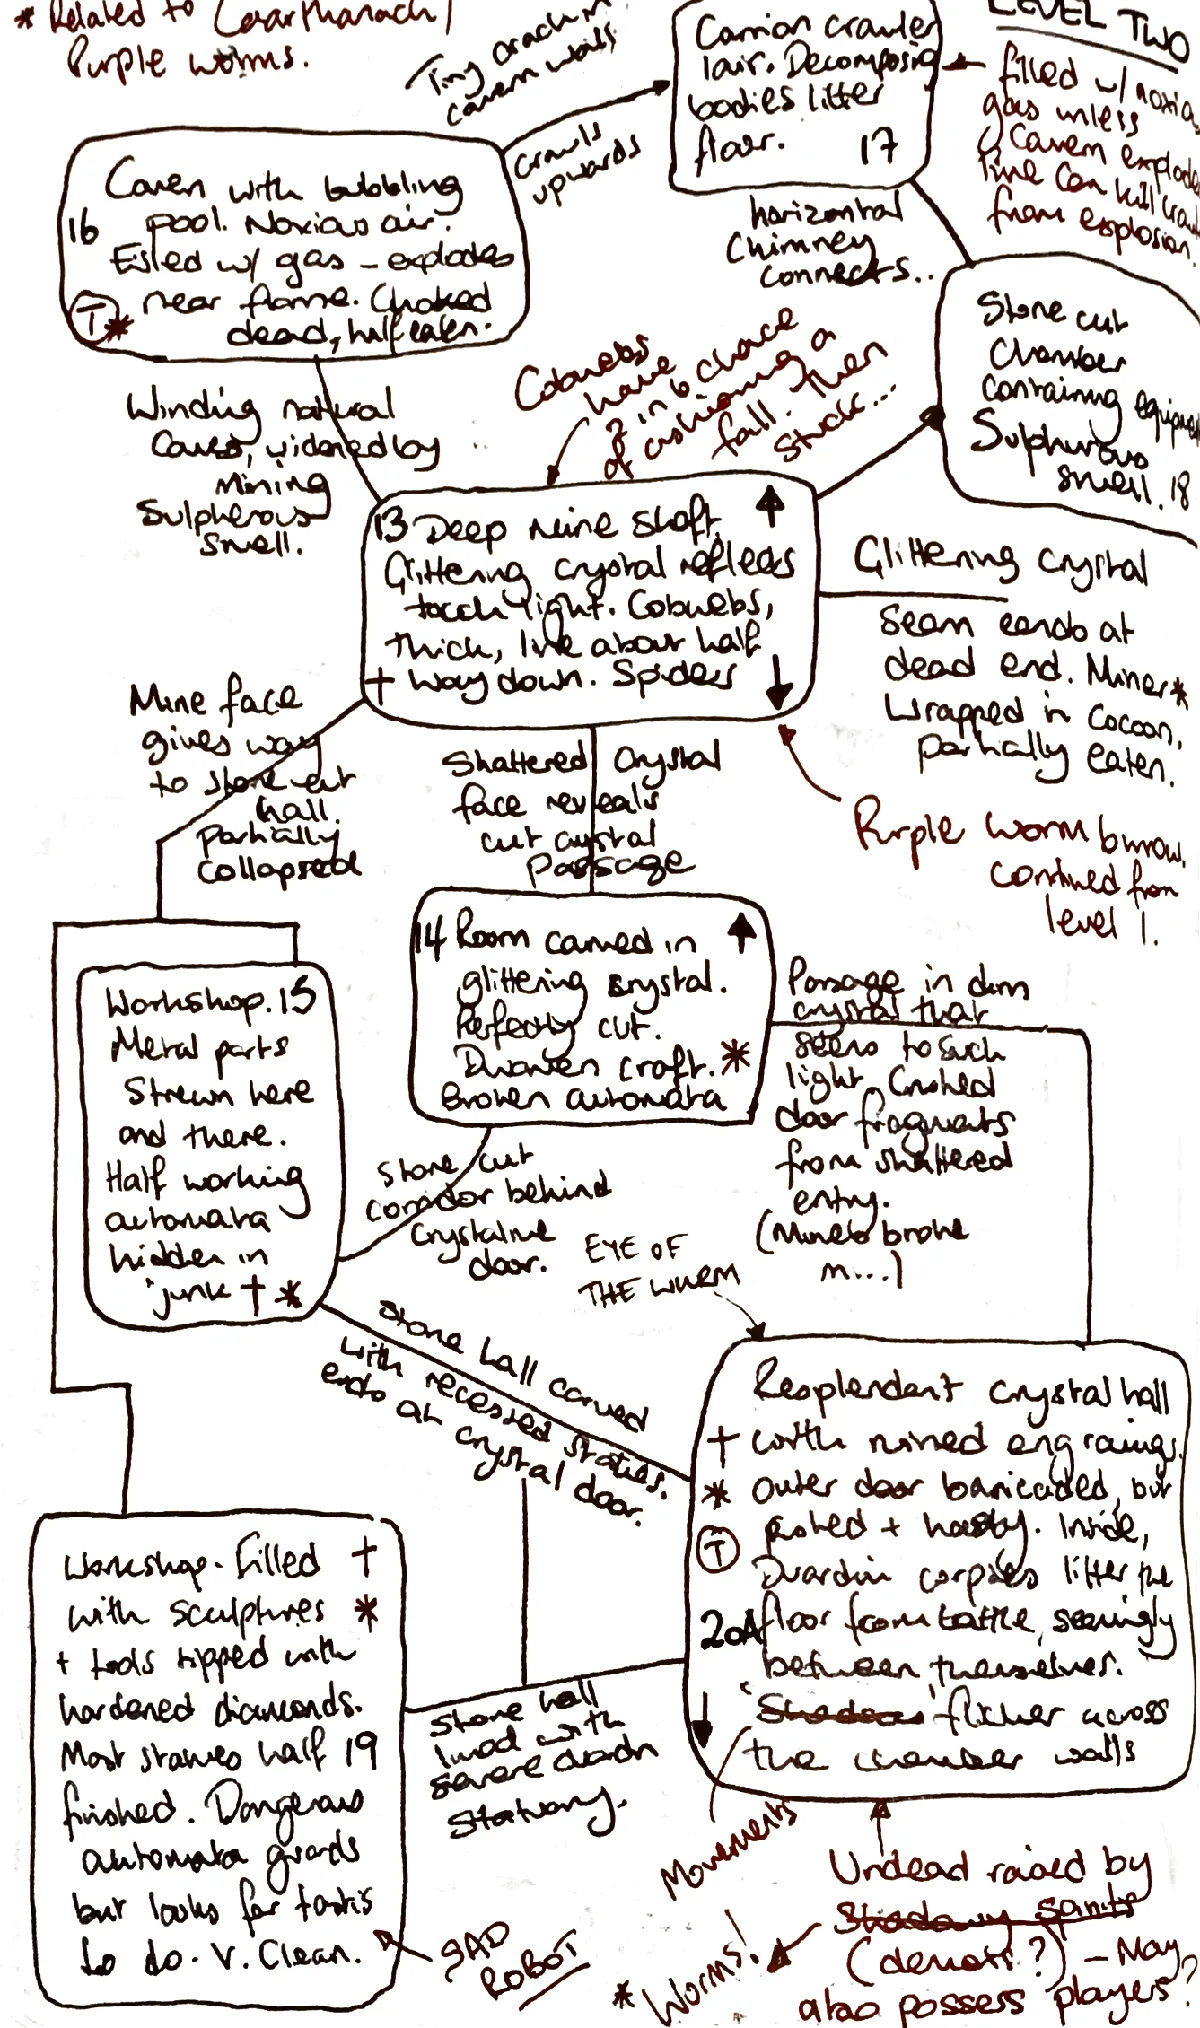 * Related to
Purple worms.
Tiny crack in
cavern walls
crawls
upwards
Carrion crawler
lair. Decomposing
bodies litter
floor. 17
LEVEL TWO
filled w/ noxious
gas unless
cavern explode
Time can kill
from explosion.
Cavern with bubbling
16 pool. Noxious air.
Filled w/ gas - explodes
T * near flame. Choked
dead, half eaten.
horizontal
Chimney
connects..
Stone cut
Chamber
containing equipment
Sulphurous
smell. 18
Cobwebs
have
2 in 6 chance
of cushioning a
fall. Then
stuck...
Winding natural
caves, widened by
mining
Sulpherous
smell.
13 Deep mine shaft.
Glittering crystal reflects
torch light. Cobwebs,
thick, line about half
+ way down. Spiders
Glittering crystal
seam ends at
dead end. Miner *
Wrapped in cocoon,
partially eaten.
Mine face
gives way
to stone cut
hall.
partially
collapsed
Shattered crystal
face reveals
cut crystal
passage
Purple worm burrow.
continued from
level 1.
14 Room carved in
glittering crystal.
Perfectly cut.
Dwarven craft. *
Broken automata
Workshop. 15
Metal parts
strewn here
and there.
Half working
automata
hidden in
junk † *
Passage in dim
crystal that
seems to suck
light. Crushed
door fragments
from shattered
entry.
(Miners broke
in...)
Stone cut
corridor behind
crystaline
door.
EYE OF
THE WURM
Stone hall carved
with recessed statues.
ends at crystal door.
Resplendent crystal hall
† with ruined engravings.
* outer door barricaded, but
T rotted + hasty. Inside,
Duardin corpses litter the
20A floor from battle, seemingly
between themselves.
'Shadows' flicker across
the chamber walls
Workshop. Filled †
with sculptures *
+ tools tipped with
hardened diamonds.
Most statues half 19
finished. Dangerous
automata guards
but looks for tasks
to do. V. Clean.
Stone hall
lined with
severe duardin
statuary.
SAD
ROBOT
Movements
Undead raised by
Shadowy spirits
(demons?) - May
also possess players?
* Worms!